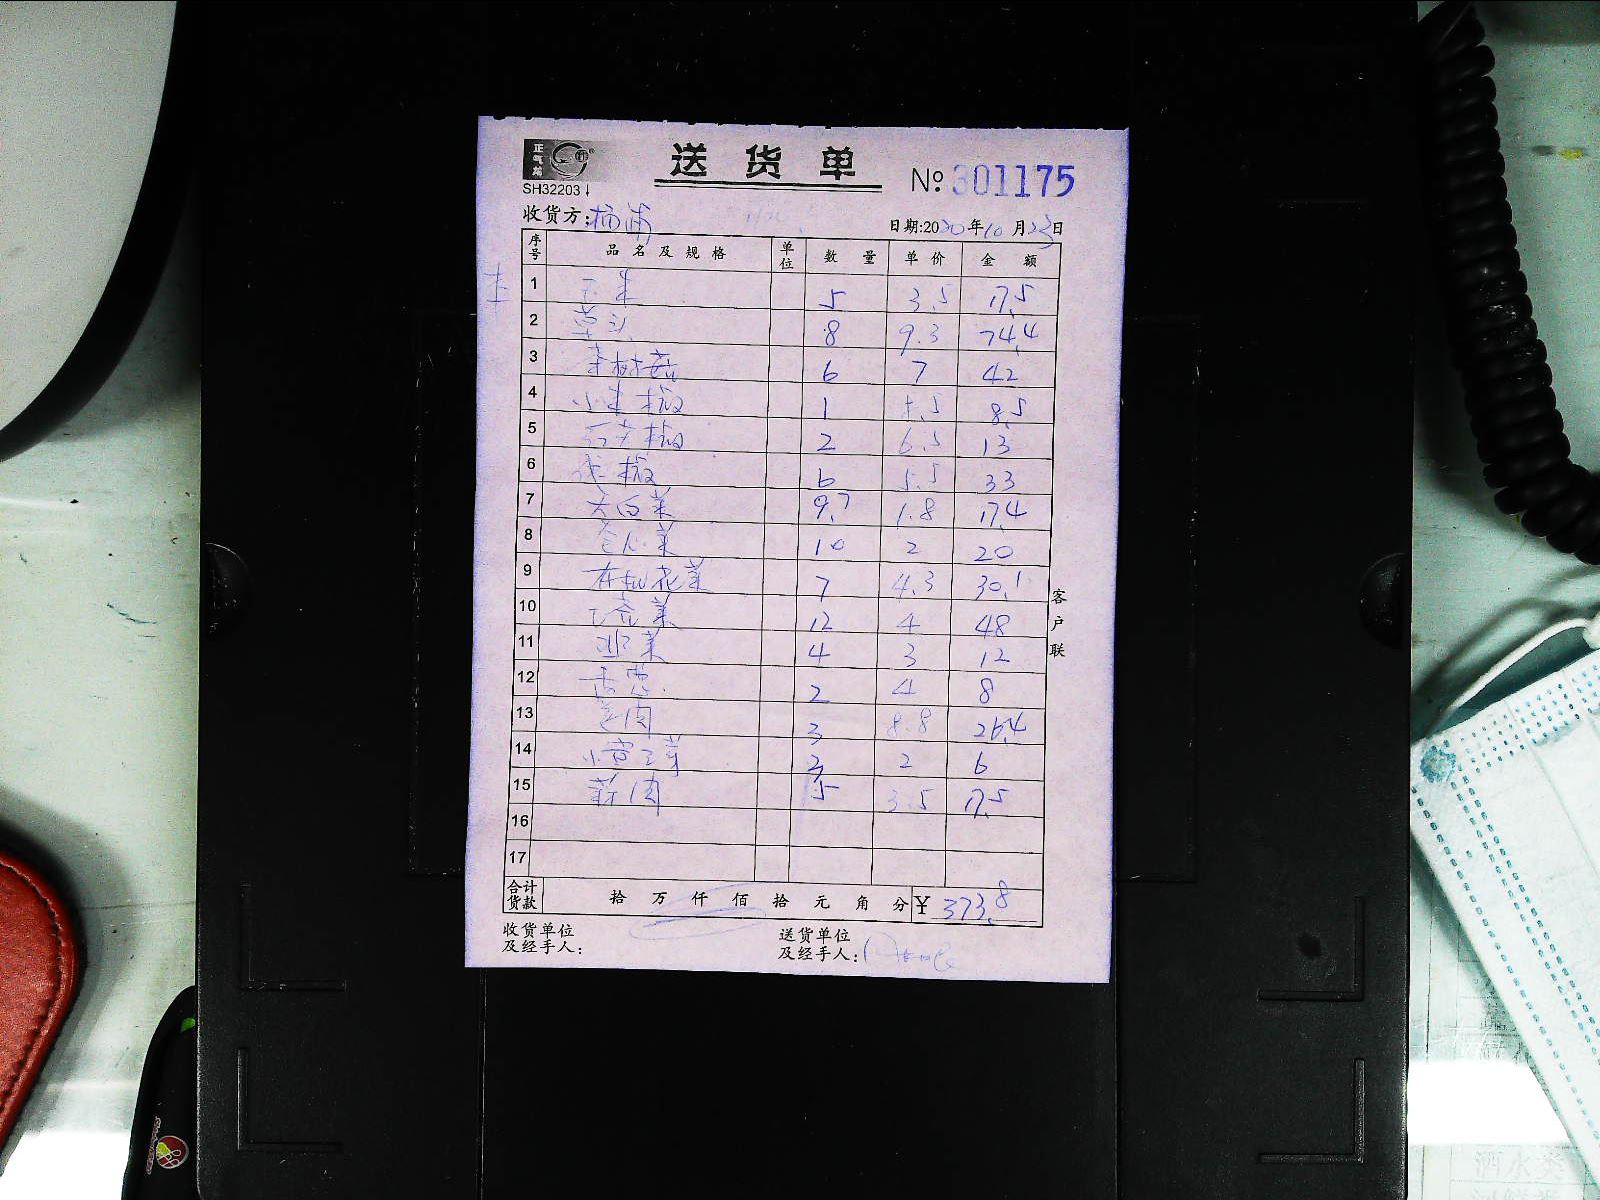 正气 送货单 № 301175
SH32203
收货方: 杨浦 日期:2020年10月23日
序号 品名及规格 单位 数量 单价 金额
1 玉米 5 3.5 17.5
2 草头 8 9.3 74.4
3 茶树菇 6 7 42
4 小米椒 1 8.5
5 红尖椒 2 6.5 13
6 尖椒 6 5.5 33
7 大白菜 9.7 1.8 17.4
8 卷心菜 10 2 20
9 有机花菜 7 4.3 30.1
10 菜 12 4 48
11 韭菜 4 3 12
12 香葱 2 4 8
13 姜肉 3 8.8 26.4
14 小黄豆芽 3 2 6
15 蒜肉 5 3.5 17.5
16
17
合计货款 拾 万 仟 佰 拾 元 角 分 ¥ 373.8
收货单位及经手人: 送货单位及经手人:
客户联